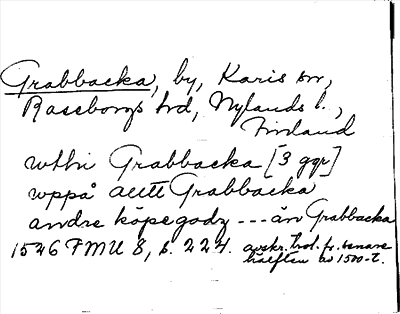 Grabbacka, by, Karis sn,
Raseborgs hd, Nylands l.,
Finland
wthi Grabbacka [3 ggr]
wppå aett Grabbacka
andre köpegodz --- än Grabbacka
1546 FMU 8, s. 224. avskr. trol. fr. senare
hälften av 1500-t.